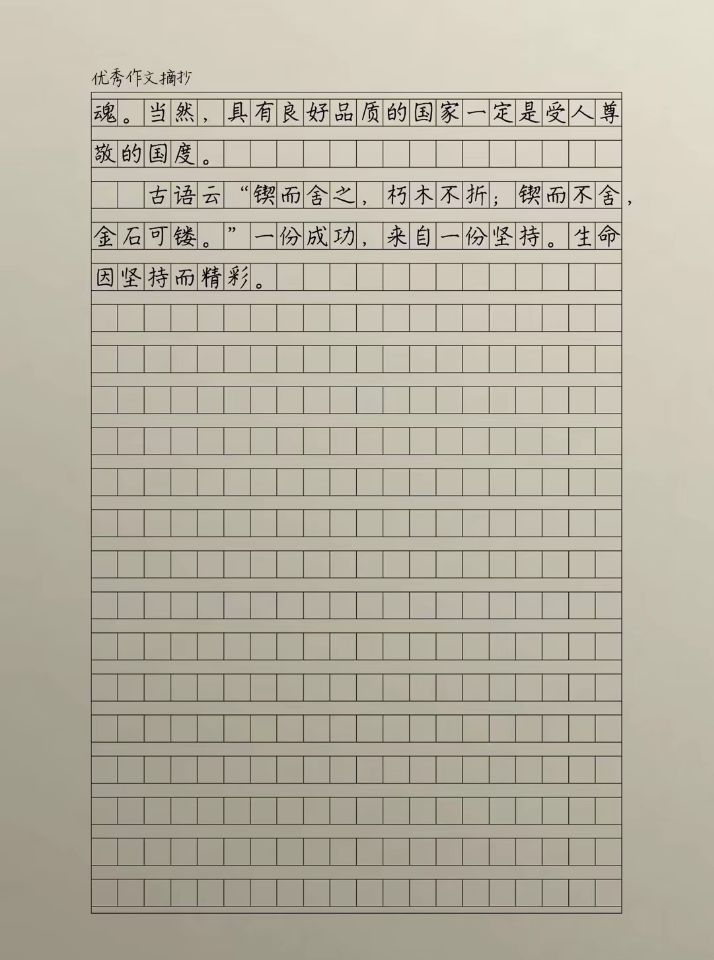 优秀作文摘抄
魂。当然，具有良好品质的国家一定是受人尊
敬的国度。
古语云“锲而舍之，朽木不折；锲而不舍，
金石可镂。”一份成功，来自一份坚持。生命
因坚持而精彩。